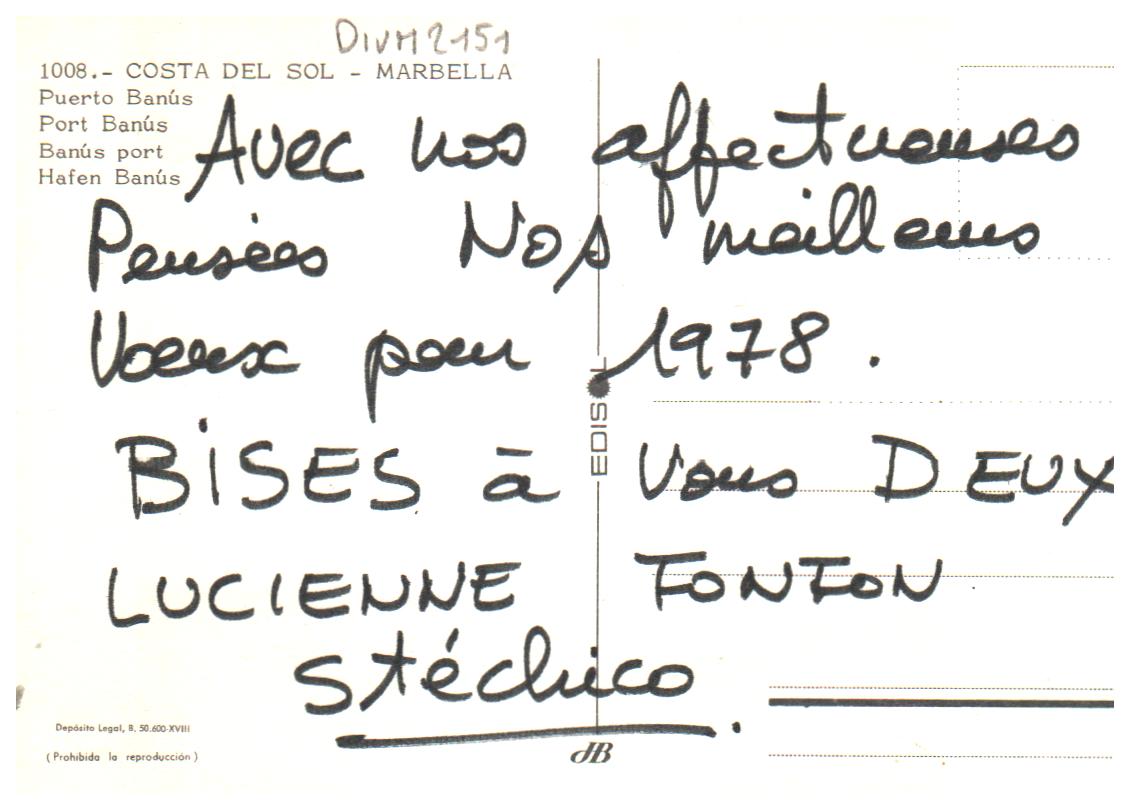 DIVM2151
1008.- COSTA DEL SOL - MARBELLA
Puerto Banús
Port Banús
Banús port
Hafen Banús
Avec nos affectueuses
Pensées Nos meilleurs
Voeux pour 1978.
BISES à Vous DEUX
LUCIENNE TONTON
Stéchico.
EDISOL
Depósito Legal, B. 50.600-XVIII
(Prohibida la reproducción)
JB